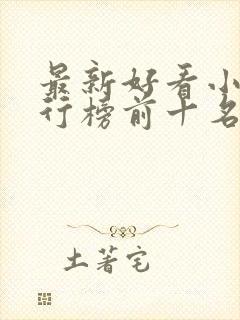 最新好看小
行榜前十名
土著宅